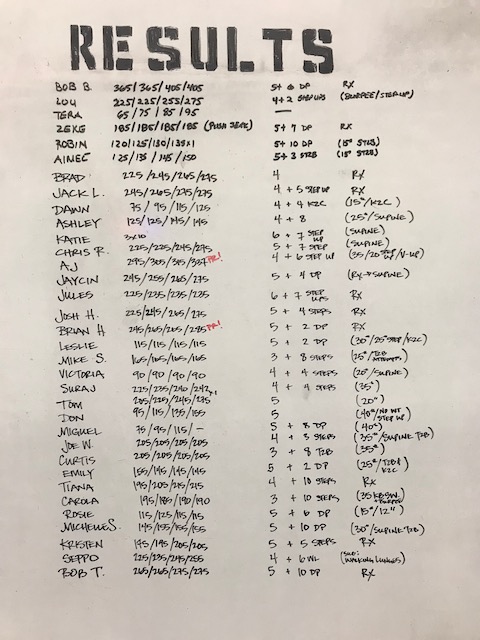 RESULTS
BOB B. 365/365/405/405 5+6 DP RX
LOU 225/225/255/275 4+2 STEP UPS (BURPEE/STEP UP)
TERA 65/75/85/95 —
ZEKE 185/185/185/185 (PUSH JERK) 5+7 DP RX
ROBIN 120/125/130/135x1 5+10 DP (15# STEB)
AINEE 125/135/145/150 5+3 (15#
BRAD 225/245/265/275 4 RX
JACK L. 245/265/275/275 4+5 STEP UP RX
DAWN 75/95/115/125 4+4 K2C (15#/K2C)
ASHLEY 125/125/145/145 4+8 (25#/SUPINE)
KATIE 3x10 6+7 STEP UP (SUPINE)
CHRIS R. 225/225/245/275 5+7 STEP (SUPINE)
AJ 295/305/315/335 PR! 4+6 STEP UP (35/20 STEP UP/V-UP)
JAYCIN 245/255/265/275 5+4 DP (RX→SUPINE)
JULES 225/235/235/235 6+7 STEP UPS RX
JOSH H. 225/245/265/275 5+4 STEPS RX
BRIAN H 245/265/265/285 PR! 5+2 DP RX
LESLIE 115/115/115/115 5+2 DP (30#/25# STEP/K2C)
MIKE S. 165/165/165/165 3+8 STEPS (25#/T2B ATTEMPTS)
VICTORIA 90/90/90/90 4+4 STEPS (20#/SUPINE)
SURAJ 225/235/240/242 x1 4+4 STEPS (35#)
TOM 205/225/245/275 5 (20#)
DON 95/115/135/155 5 (40#/NO WT STEP UP)
MIGUEL 75/95/115/— 5+8 DP (40#)
JOE W. 205/205/205/205 4+3 STEPS (35#/SUPINE T2B)
CURTIS 205/205/205/205 3+8 T2B (35#)
EMILY 155/145/145/145 5+2 DP (25#/T2B/K2C)
TIANA 195/205/215/215 4+10 STEPS RX
CAROLA 195/185/190/190 3+10 STEPS (35 KBSW.
ROSIE 115/125/115/115 5+6 DP (15#/12")
MICHELLE S. 145/155/155/155 5+10 DP (30#/SUPINE T2B)
KRISTEN 195/195/205/205 5+5 STEPS RX
SEPPO 225/235/245/255 4+6 WL (SUB: WALKING LUNGES)
BOB T. 265/265/275/275 5+10 DP RX